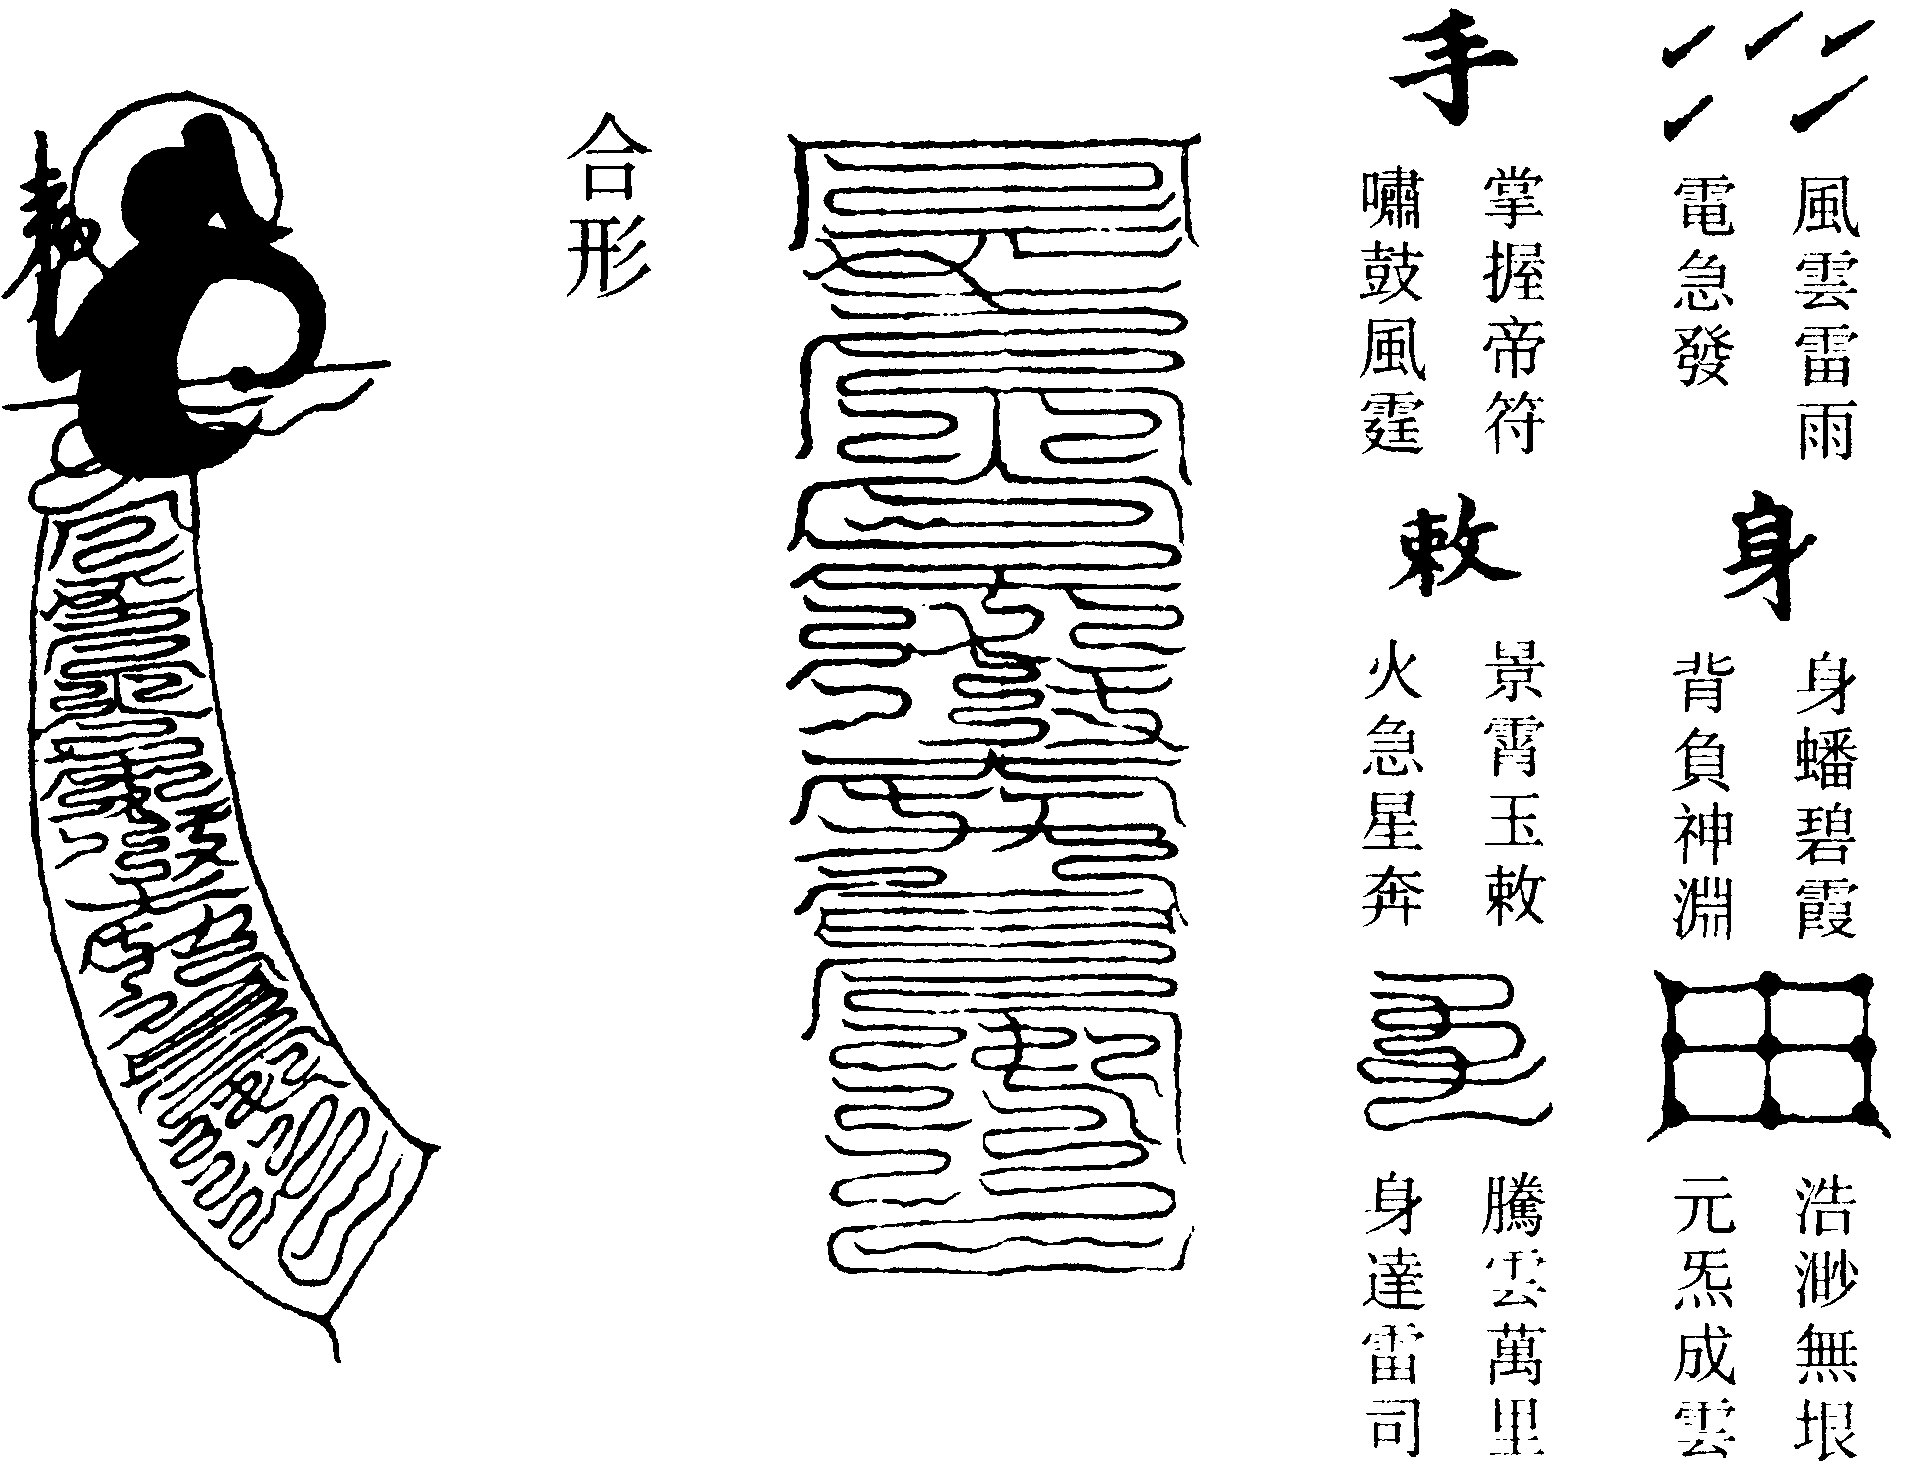 風雲雷雨
電急發
身
身蟠碧霞
背負神淵
浩渺無垠
元炁成雲
手
掌握帝符
嘯鼓風霆
敕
景霄玉敕
火急星奔
騰雲萬里
身達雷司
合形